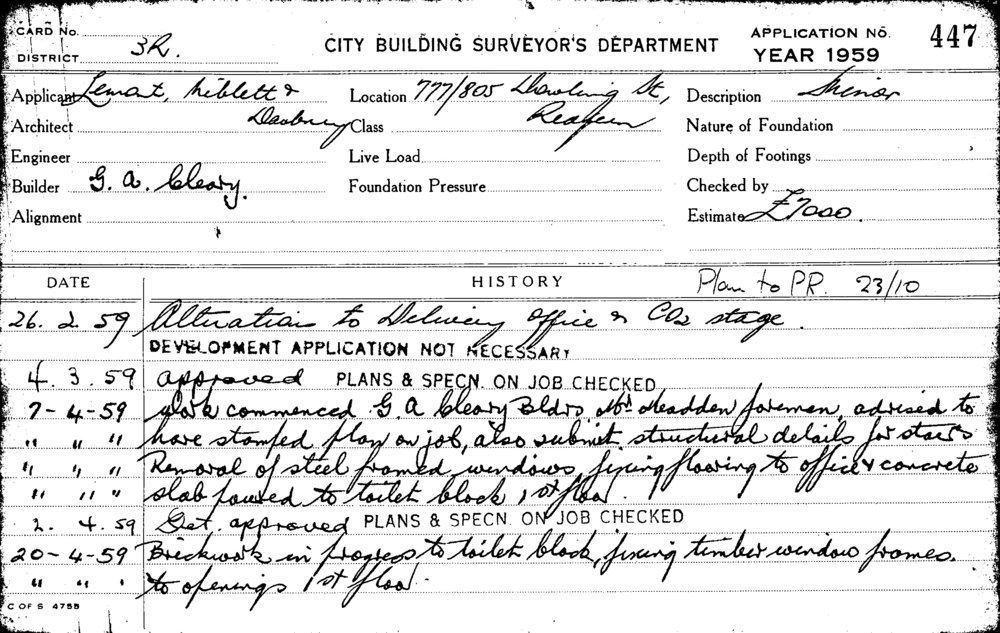 CARD No. CITY BUILDING SURVEYOR'S DEPARTMENT APPLICATION No. 447
DISTRICT 3R. YEAR 1959
Applicant Lemont, Niblett & Location 777/805 Dowling St, Description Minor
Architect Class Redfern Nature of Foundation
Engineer Live Load Depth of Footings
Builder G. A. Cleary. Foundation Pressure Checked by
Alignment Estimate £7000.
DATE HISTORY Plan to PR. 23/10
26. 2. 59 Alterations to Delivery Office & CO2 stage.
DEVELOPMENT APPLICATION NOT NECESSARY
4. 3. 59 approved PLANS & SPECN. ON JOB CHECKED
7-4-59 Work commenced G. A Cleary Bldrs Mr Madden foreman, advised to
" " " have stamped plan on job, also submit structural details for stairs
" " " Removal of steel framed windows, fixing flooring to office & concrete
" " " slab poured to toilet block 1st floor.
2. 4. 59 Det. approved PLANS & SPECN. ON JOB CHECKED
20-4-59 Brickwork in progress to toilet block, fixing timber window frames.
" " " to openings 1st floor.
C OF S 4755